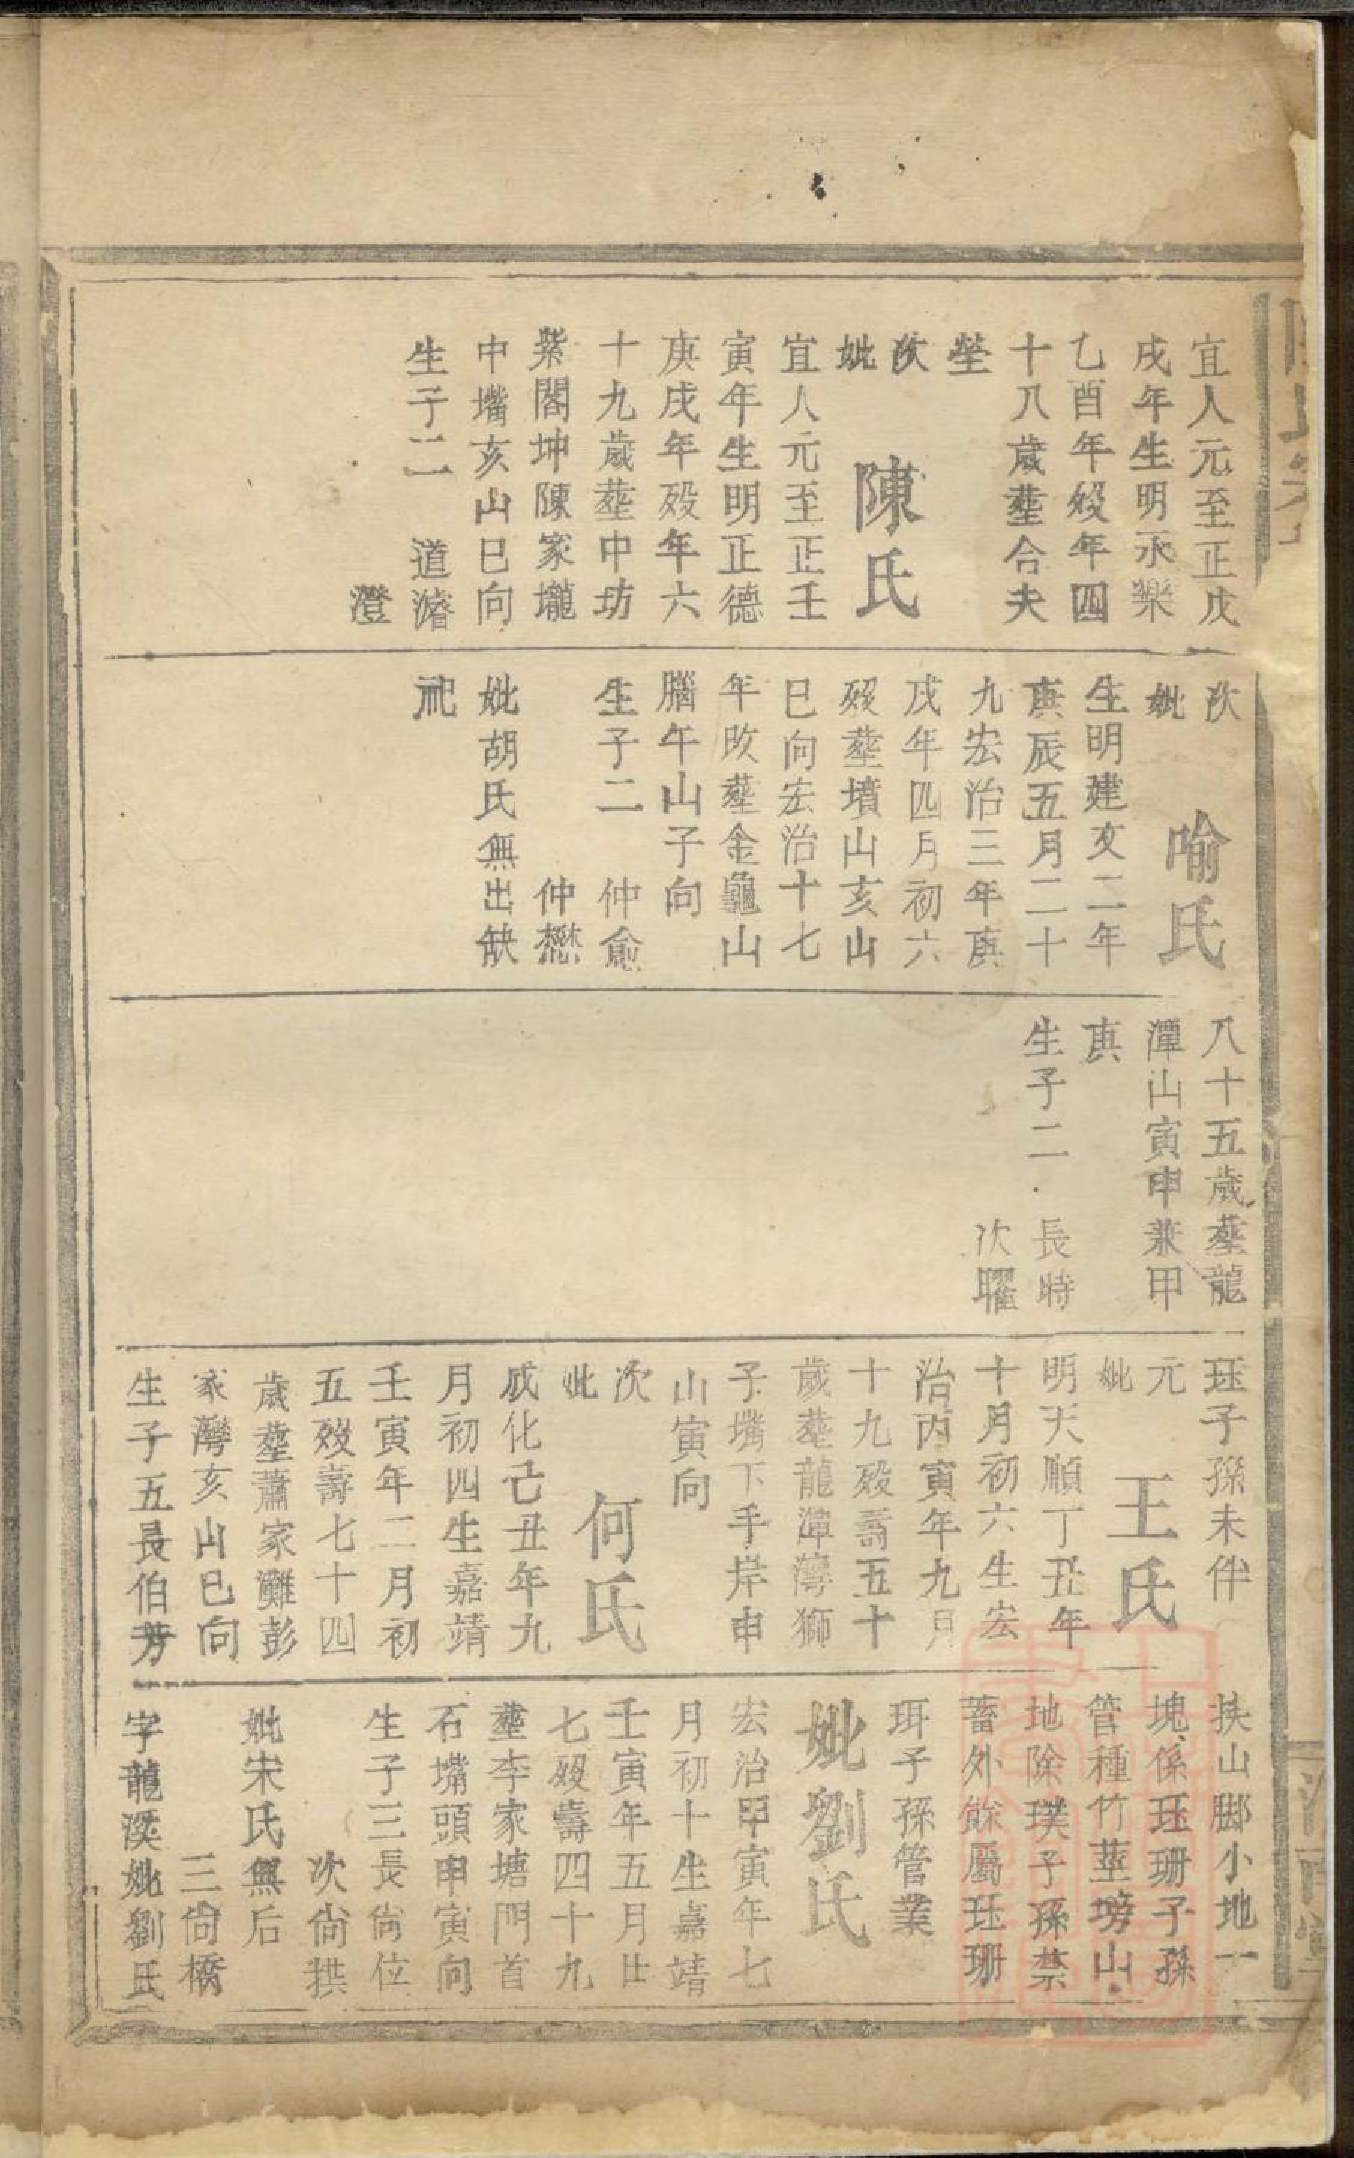 宜人元至正戊
戌年生明永樂
乙酉年歿年四
十八歲塟合夫
塋
次
妣
陳氏
宜人元至正壬
寅年生明正德
庚戌年歿年六
十九歲塟中坊
紫閣坤陳家壠
中嘴亥山巳向
生子二 道濬
澄
次
妣
喻氏
生明建文二年
庚辰五月二十
九宏治三年庚
戌年四月初六
歿塟墳山亥山
巳向宏治十七
年改塟金龜山
腦午山子向
生子二 仲愈
仲懋
妣胡氏無出缺
祀
八十五歲塟龍
潭山寅申兼甲
庚
生子二 長時
次曜
珏子孫未伴
元
妣
王氏
明天順丁丑年
十月初六生宏
治丙寅年九月
十九歿壽五十
歲塟龍潭灣獅
子嘴下手岸申
山寅向
次
妣
何氏
成化己丑年九
月初四生嘉靖
壬寅年二月初
五歿壽七十四
歲塟蕭家灘彭
家灣亥山巳向
生子五長伯芳
扶山腳小地一
塊係珏珊子孫
管種竹莖塝山
地除璞子孫禁
蓄外餘屬珏珊
珥子孫管業
妣劉氏
宏治甲寅年七
月初十生嘉靖
壬寅年五月廿
七歿壽四十九
塟李家塘門首
石嘴頭申寅向
生子三長尙位
次尙拱
妣宋氏無后
三尙橋
字龍溪妣劉氏